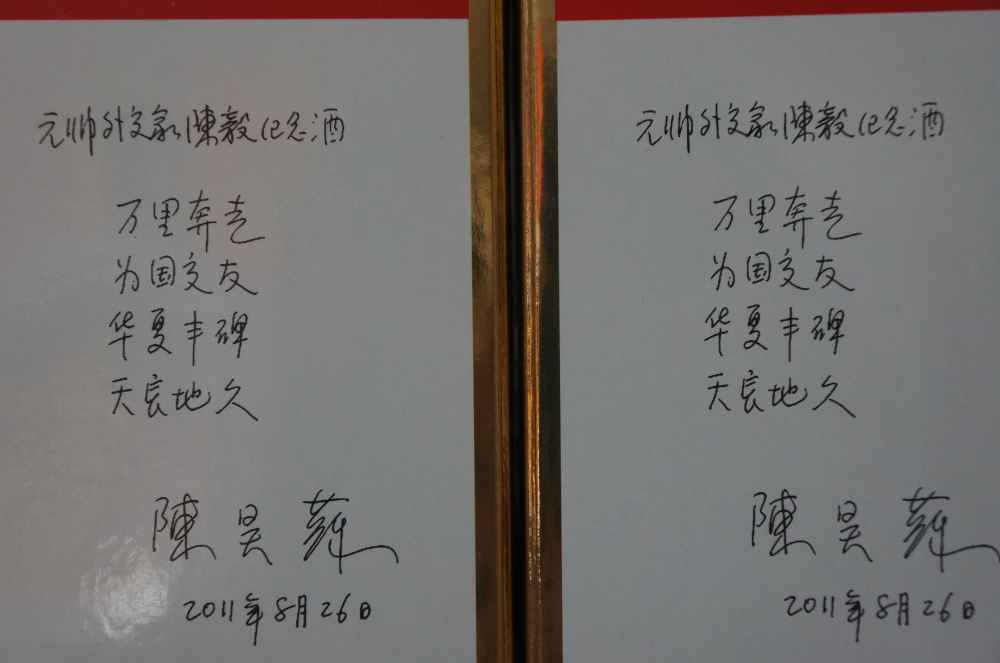 元帅外交家陳毅纪念酒
万里奔走
为国交友
华夏丰碑
天長地久
陳昊蘇
2011年8月26日
元帅外交家陳毅纪念酒
万里奔走
为国交友
华夏丰碑
天長地久
陳昊蘇
2011年8月26日